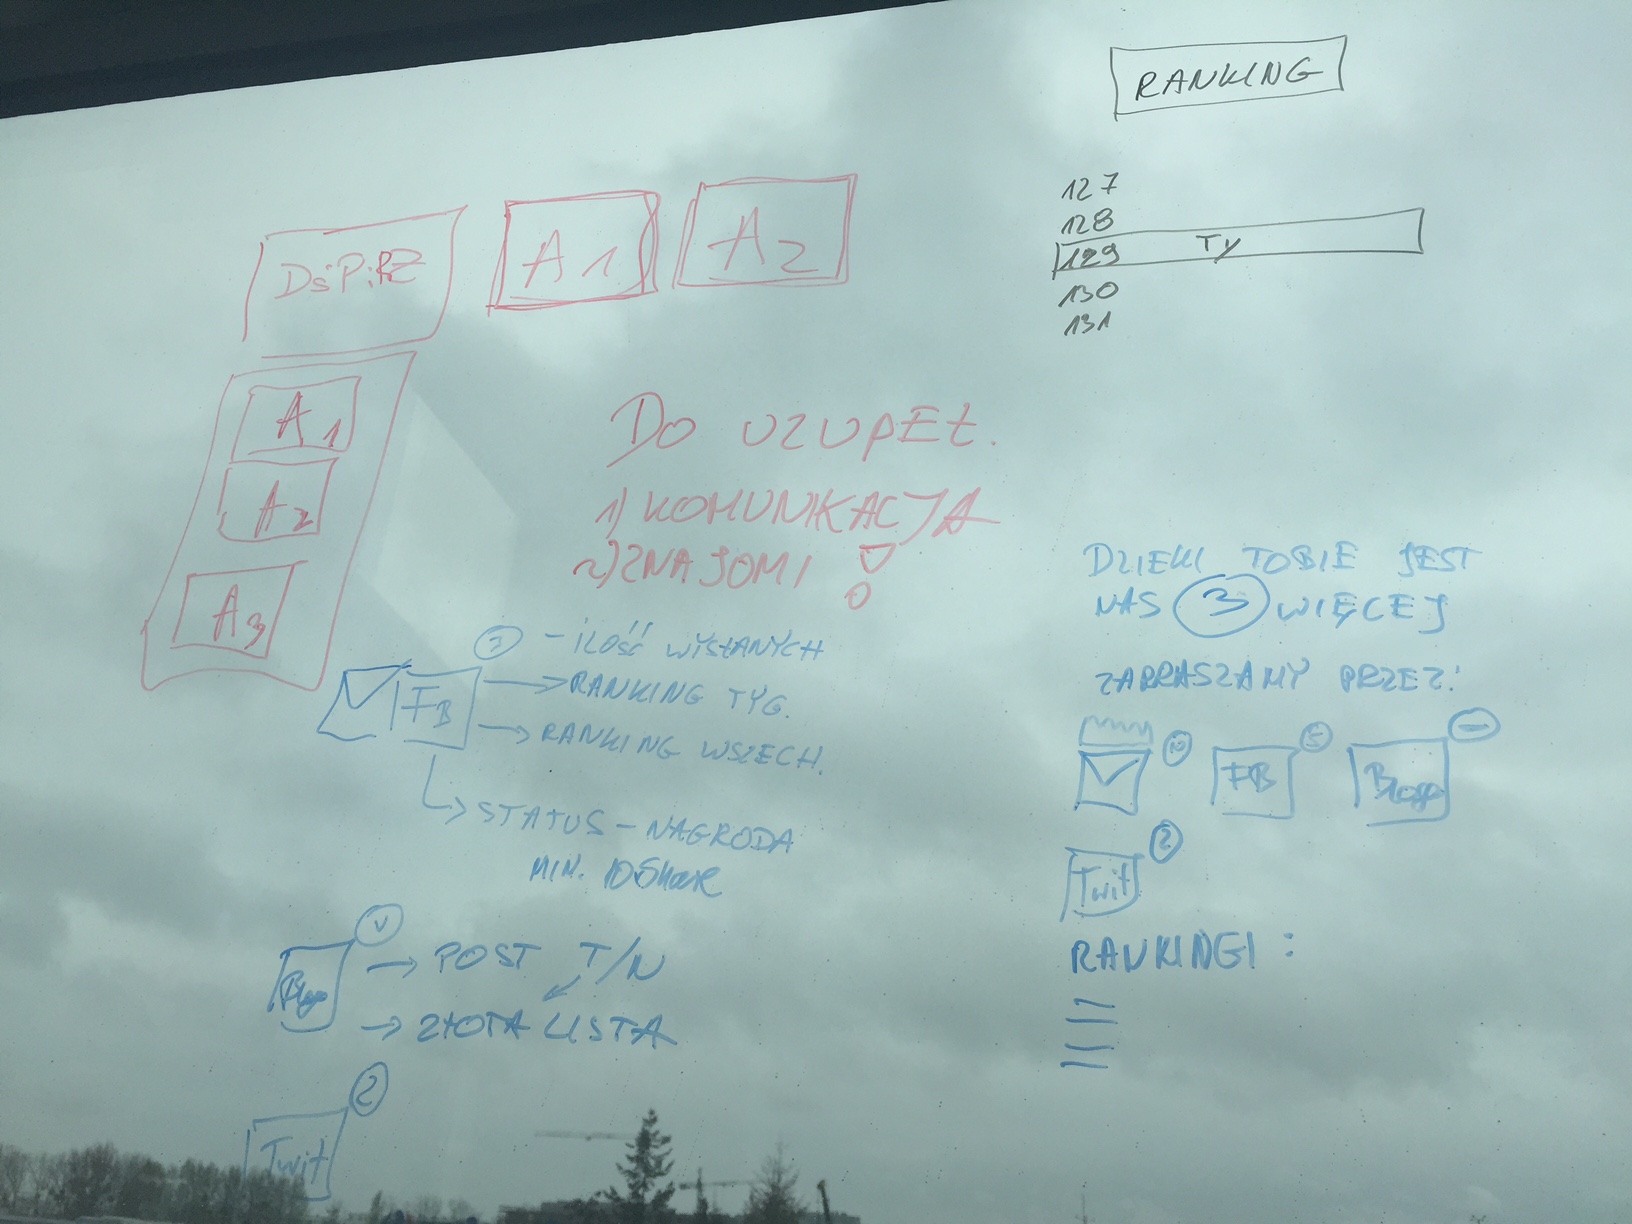 RANKING
127
128
129 TY
130
131
A1
A2
A1
A2
A3
DO UZUPEŁ.
1) KOMUNIKACJA
2) ZNAJOMI !
3 - ILOŚĆ WYSŁANYCH
FB
RANKING TYG.
RANKING WSZECH.
STATUS - NAGRODA
MIN. 10 Share
POST T/N
ZŁOTA LISTA
2
Twit
DZIEKI TOBIE JEST
NAS 3 WIĘCEJ
ZAPRASZAMY PRZEZ:
10
FB 5
Twit 2
RANKINGI: